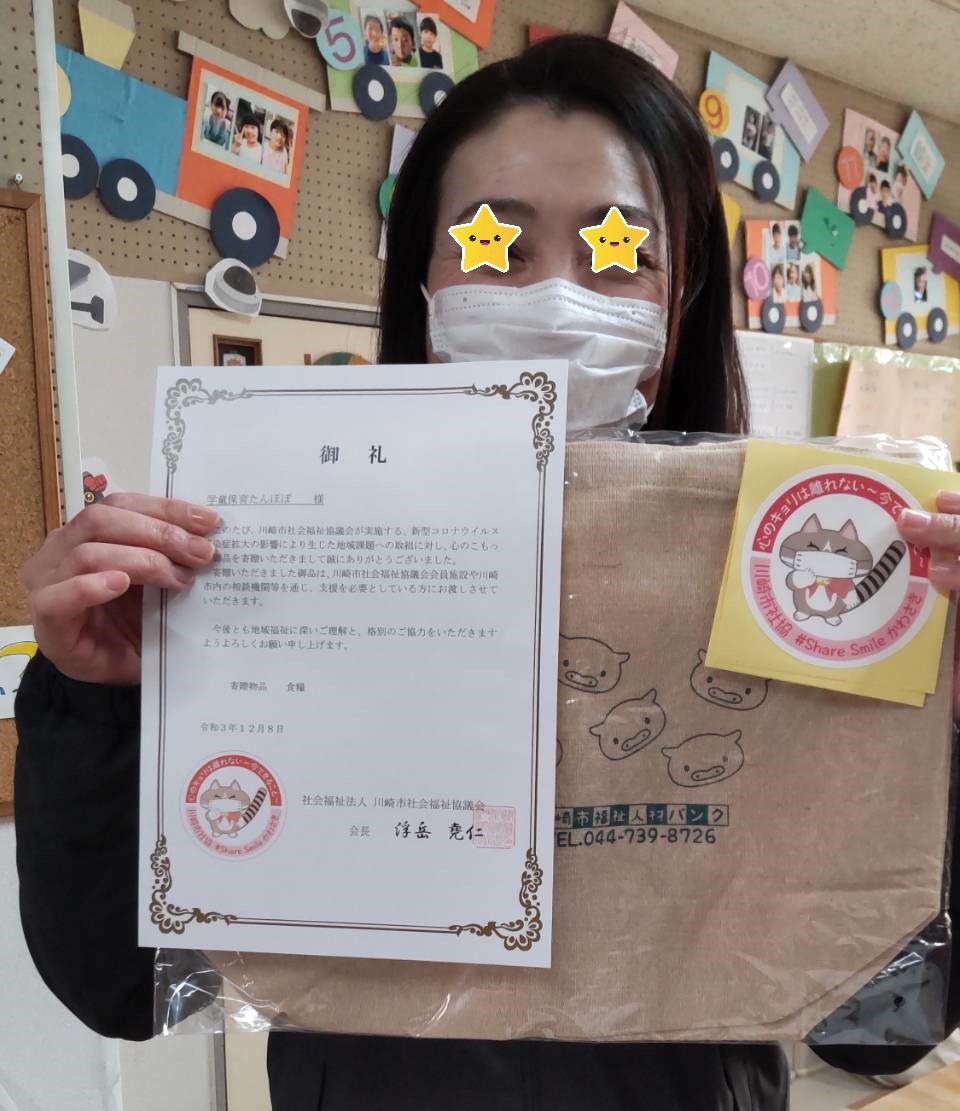 5
9
11
10
御 礼
学童保育たんぽぽ 様
のたび、川崎市社会福祉協議会が実施する、新型コロナウイルス
染症拡大の影響により生じた地域課題への取組に対し、心のこもっ
御品を寄贈いただきまして誠にありがとうございました。
寄贈いただきました御品は、川崎市社会福祉協議会会員施設や川崎
市内の相談機関等を通じ、支援を必要としている方にお渡しさせて
いただきます。
今後とも地域福祉に深いご理解と、格別のご協力をいただきます
ようよろしくお願い申し上げます。
寄贈物品 食糧
令和3年12月8日
心のキョリは離れない~今できること~
川崎市社協 #Share Smile かわさき
社会福祉法人 川崎市社会福祉協議会
会長 浮岳 堯仁
心のキョリは離れない~今で
川崎市社協 #Share Smile かわさき
崎市福祉人材バンク
EL.044-739-8726